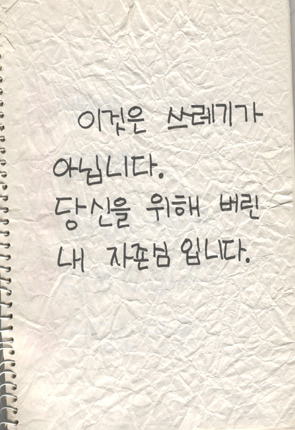 이것은 쓰레기가
아닙니다.
당신을 위해 버린
내 자존심 입니다.